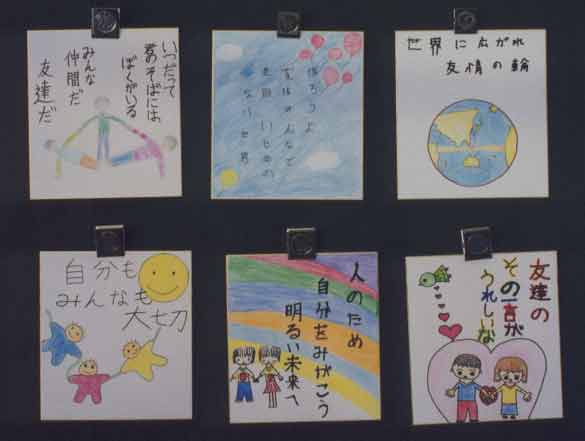 いつだって
君のそばには
ぼくがいる
みんな
仲間だ
友達だ
作ろうよ
全体のみんなで
差別いじめの
ない世界
世界に広がれ
友情の輪
自分も
みんなも
大切
人のため
自分をみがこう
明るい未来へ
友達の
その一言が
うれしいな